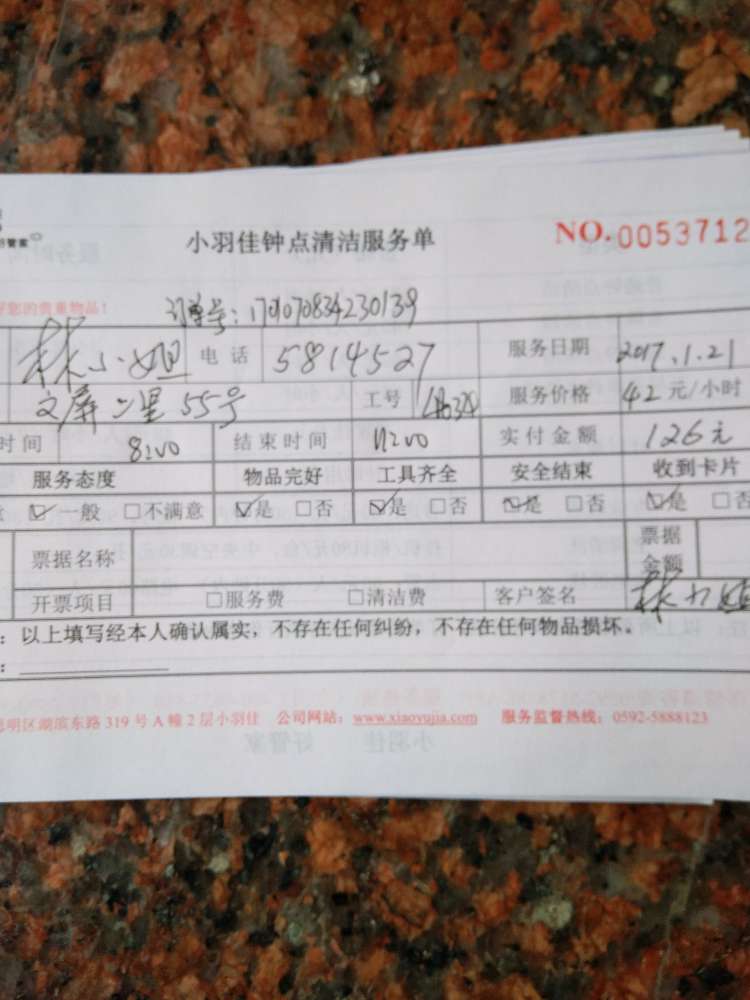 好管家
小羽佳钟点清洁服务单 NO.0053712
好您的贵重物品！
订单号：1701070834230139
林小姐 电话 5814527 服务日期 2017.1.21
文屏二里55号 工号 服务价格 42元/小时
时间 8:00 结束时间 11:00 实付金额 126元
服务态度 物品完好 工具齐全 安全结束 收到卡片
☑一般 □不满意 ☑是 □否 ☑是 □否 ☑是 □否 ☑是 □否
票据名称 票据金额
开票项目 □服务费 □清洁费 客户签名 林小姐
：以上填写经本人确认属实，不存在任何纠纷，不存在任何物品损坏。
：
思明区湖滨东路319号A幢2层小羽佳 公司网站：www.xiaoyujia.com 服务监督热线：0592-5888123